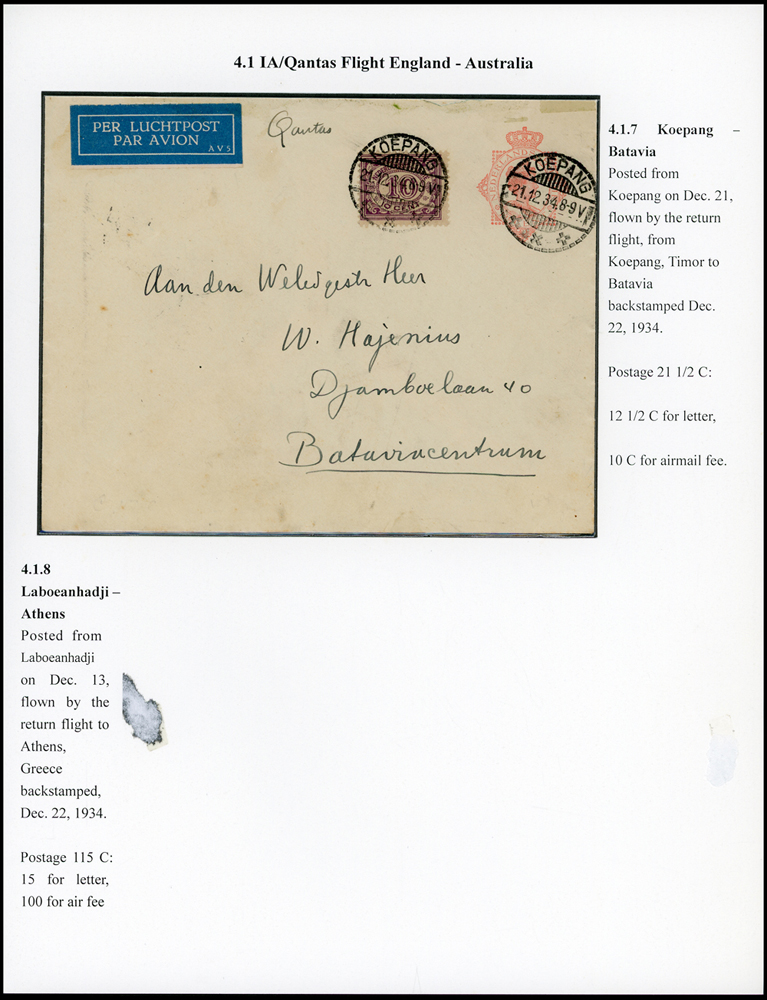 4.1 IA/Qantas Flight England - Australia
PER LUCHTPOST
PAR AVION
AVS
Qantas
KOEPANG
10
KOEPANG
21.12.34.8-9V
Aan den Weledgestr Heer
W. Hajenius
Djamboelaan 40
Bataviacentrum
4.1.7 Koepang –
Batavia
Posted from
Koepang on Dec. 21,
flown by the return
flight, from
Koepang, Timor to
Batavia
backstamped Dec.
22, 1934.
Postage 21 1/2 C:
12 1/2 C for letter,
10 C for airmail fee.
4.1.8
Laboeanhadji –
Athens
Posted from
Laboeanhadji
on Dec. 13,
flown by the
return flight to
Athens,
Greece
backstamped,
Dec. 22, 1934.
Postage 115 C:
15 for letter,
100 for air fee